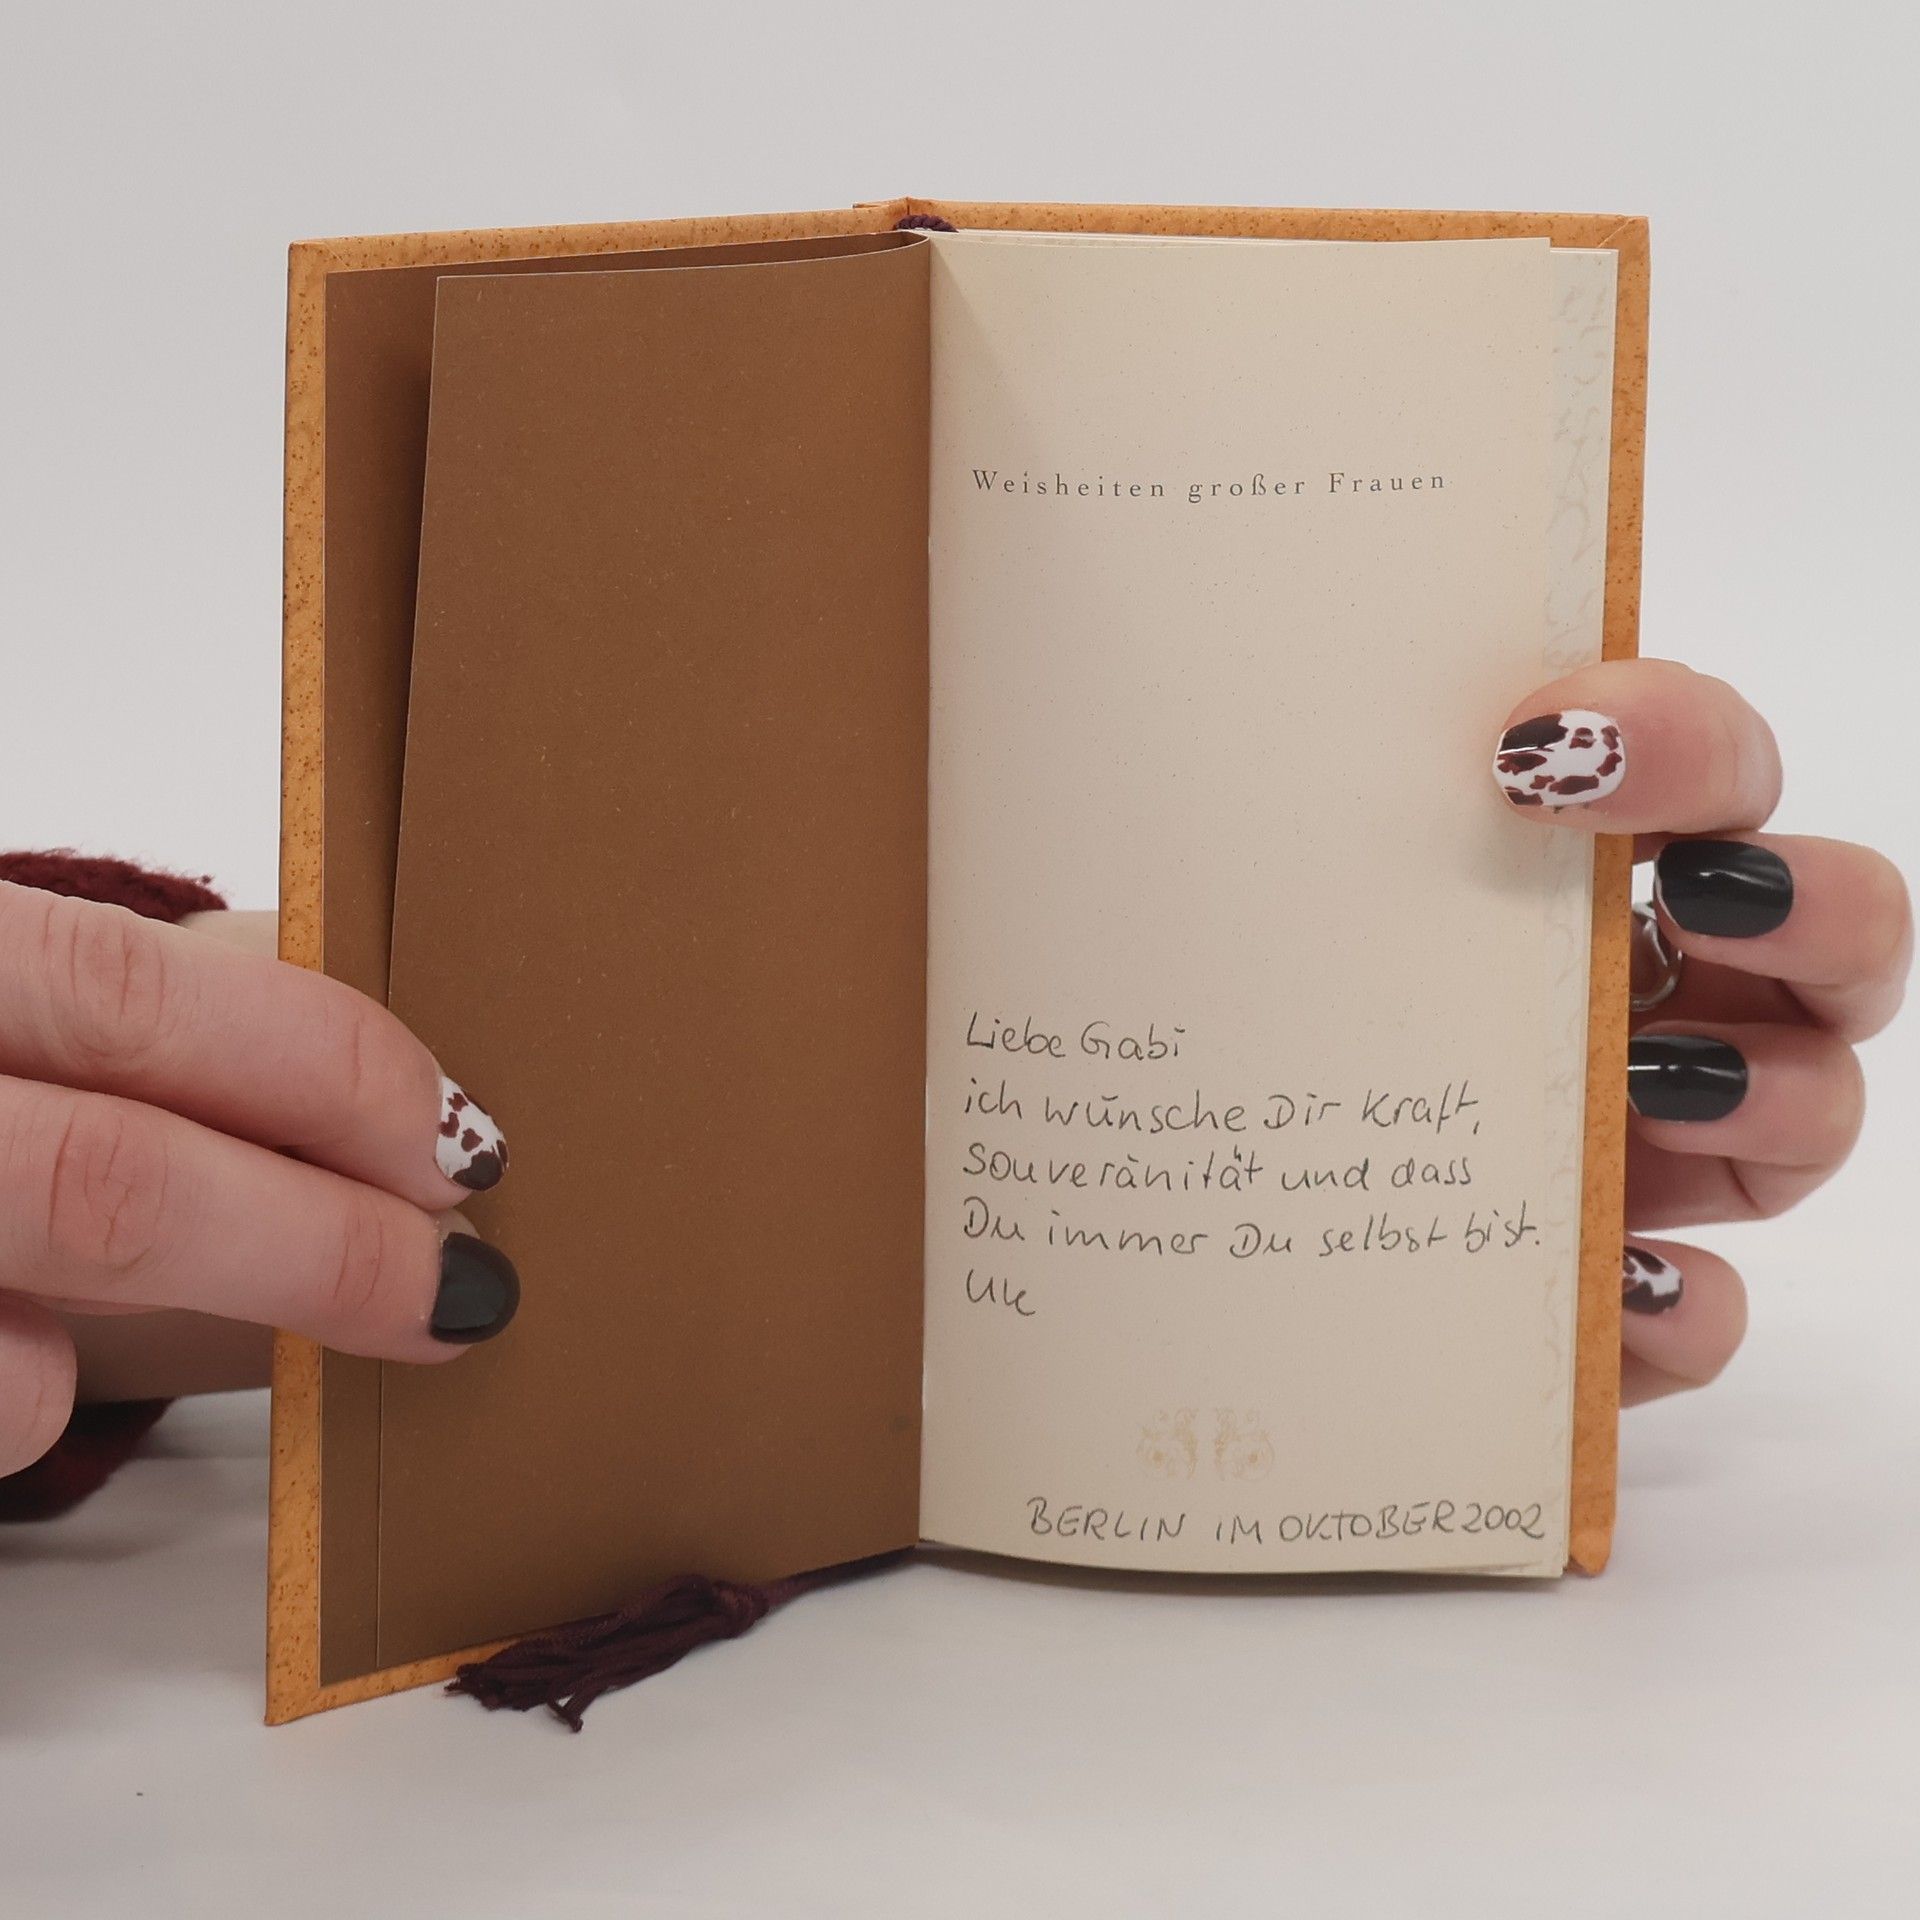 Weisheiten großer Frauen
Liebe Gabi
ich wünsche Dir Kraft,
Souveränität und dass
Du immer Du selbst bist.
BERLIN IM OKTOBER 2002